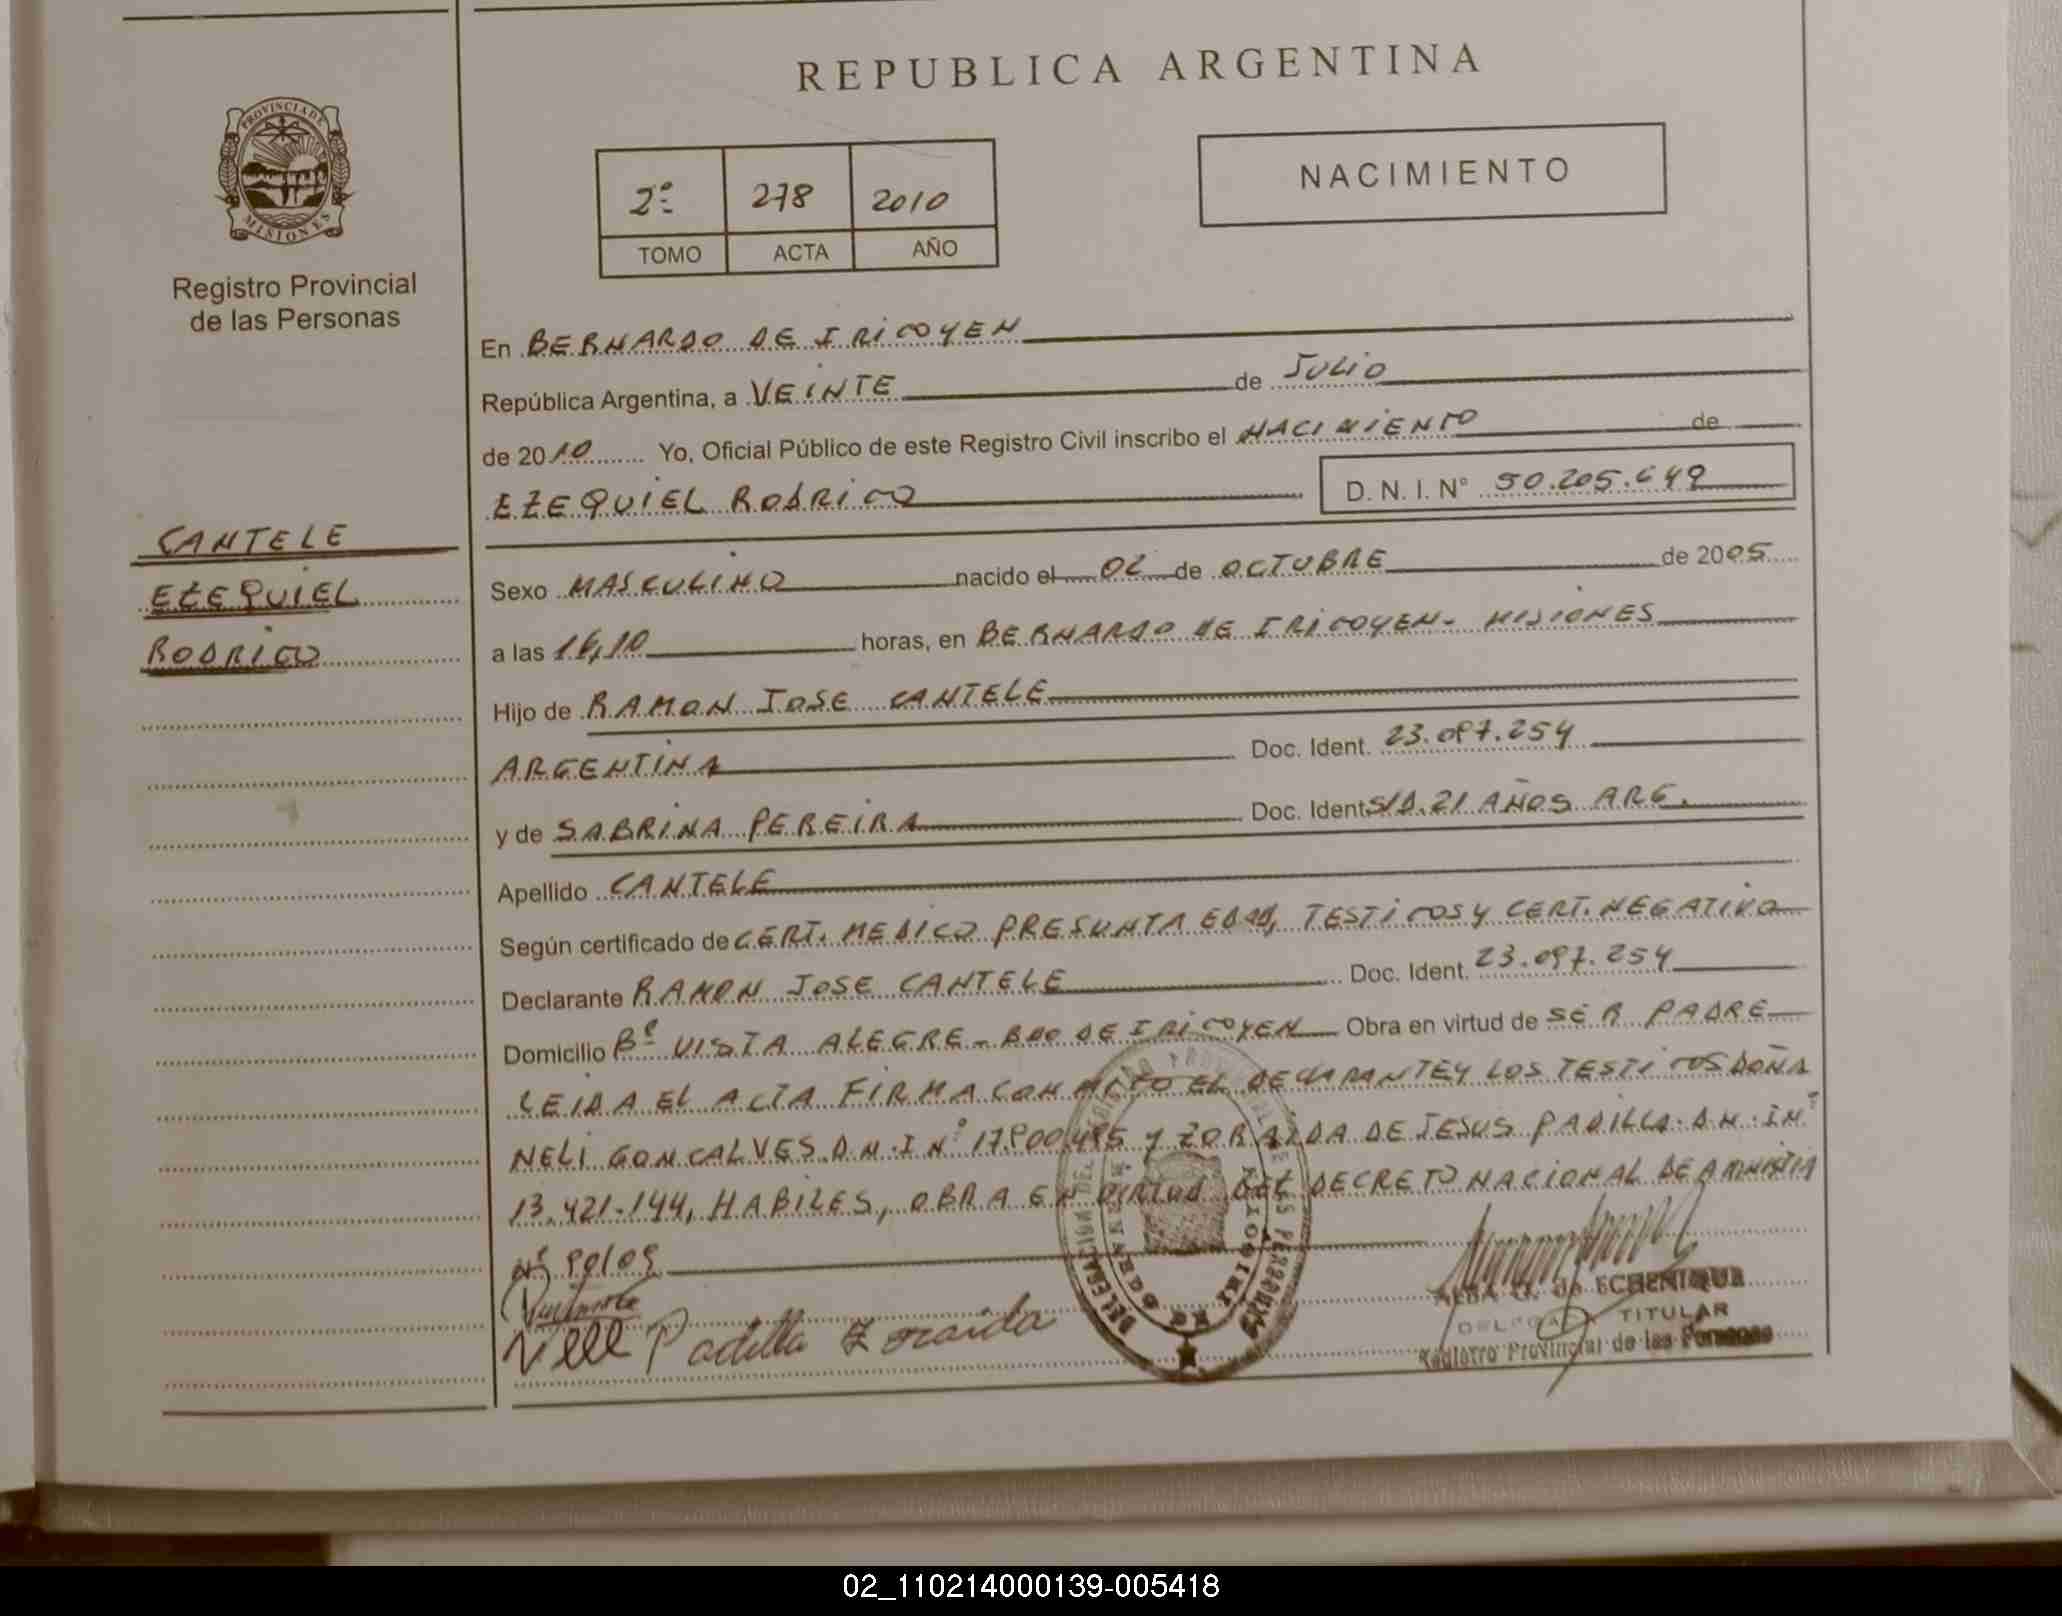 REPUBLICA ARGENTINA
PROVINCIA DE
MISIONES
Registro Provincial
de las Personas
2º 278 2010
TOMO ACTA AÑO
NACIMIENTO
CANTELE
EZEQUIEL
RODRIGO
En BERNARDO DE IRIGOYEN
República Argentina, a VEINTE de JULIO
de 2010 Yo, Oficial Público de este Registro Civil inscribo el NACIMIENTO de
EZEQUIEL RODRIGO D. N. I. N° 50.205.649
Sexo MASCULINO nacido el 02 de OCTUBRE de 2005
a las 16,10 horas, en BERNARDO DE IRIGOYEN- MISIONES
Hijo de RAMON JOSE CANTELE
ARGENTINA Doc. Ident. 23.097.254
y de SABRINA PEREIRA Doc. Ident S/D. 21 AÑOS ARG.
Apellido CANTELE
Según certificado de CERT. MEDICO PRESUNTA EDAD, TESTIGOS Y CERT. NEGATIVO
Declarante RAMON JOSE CANTELE Doc. Ident. 23.097.254
Domicilio Bº VISTA ALEGRE - BDO DE IRIGOYEN Obra en virtud de SER PADRE
LEIDA EL ACTA FIRMA CON MIGO EL DECLARANTE Y LOS TESTIGOS DOÑA
NELI GONCALVES D.N.I Nº 17.900.495 y ZORAIDA DE JESUS PADILLA. D.N.I Nº
13.421.144, HABILES, OBRA EN VIRTUD DEL DECRETO NACIONAL DE AMNISTIA
Nº 90/09
Neli Padilla Zoraida
DELEGACION DEL REGISTRO PROVINCIAL DE LAS PERSONAS
ALBA G. de ECHENIQUE
DELEGADA TITULAR
Registro Provincial de las Personas
02_110214000139-005418